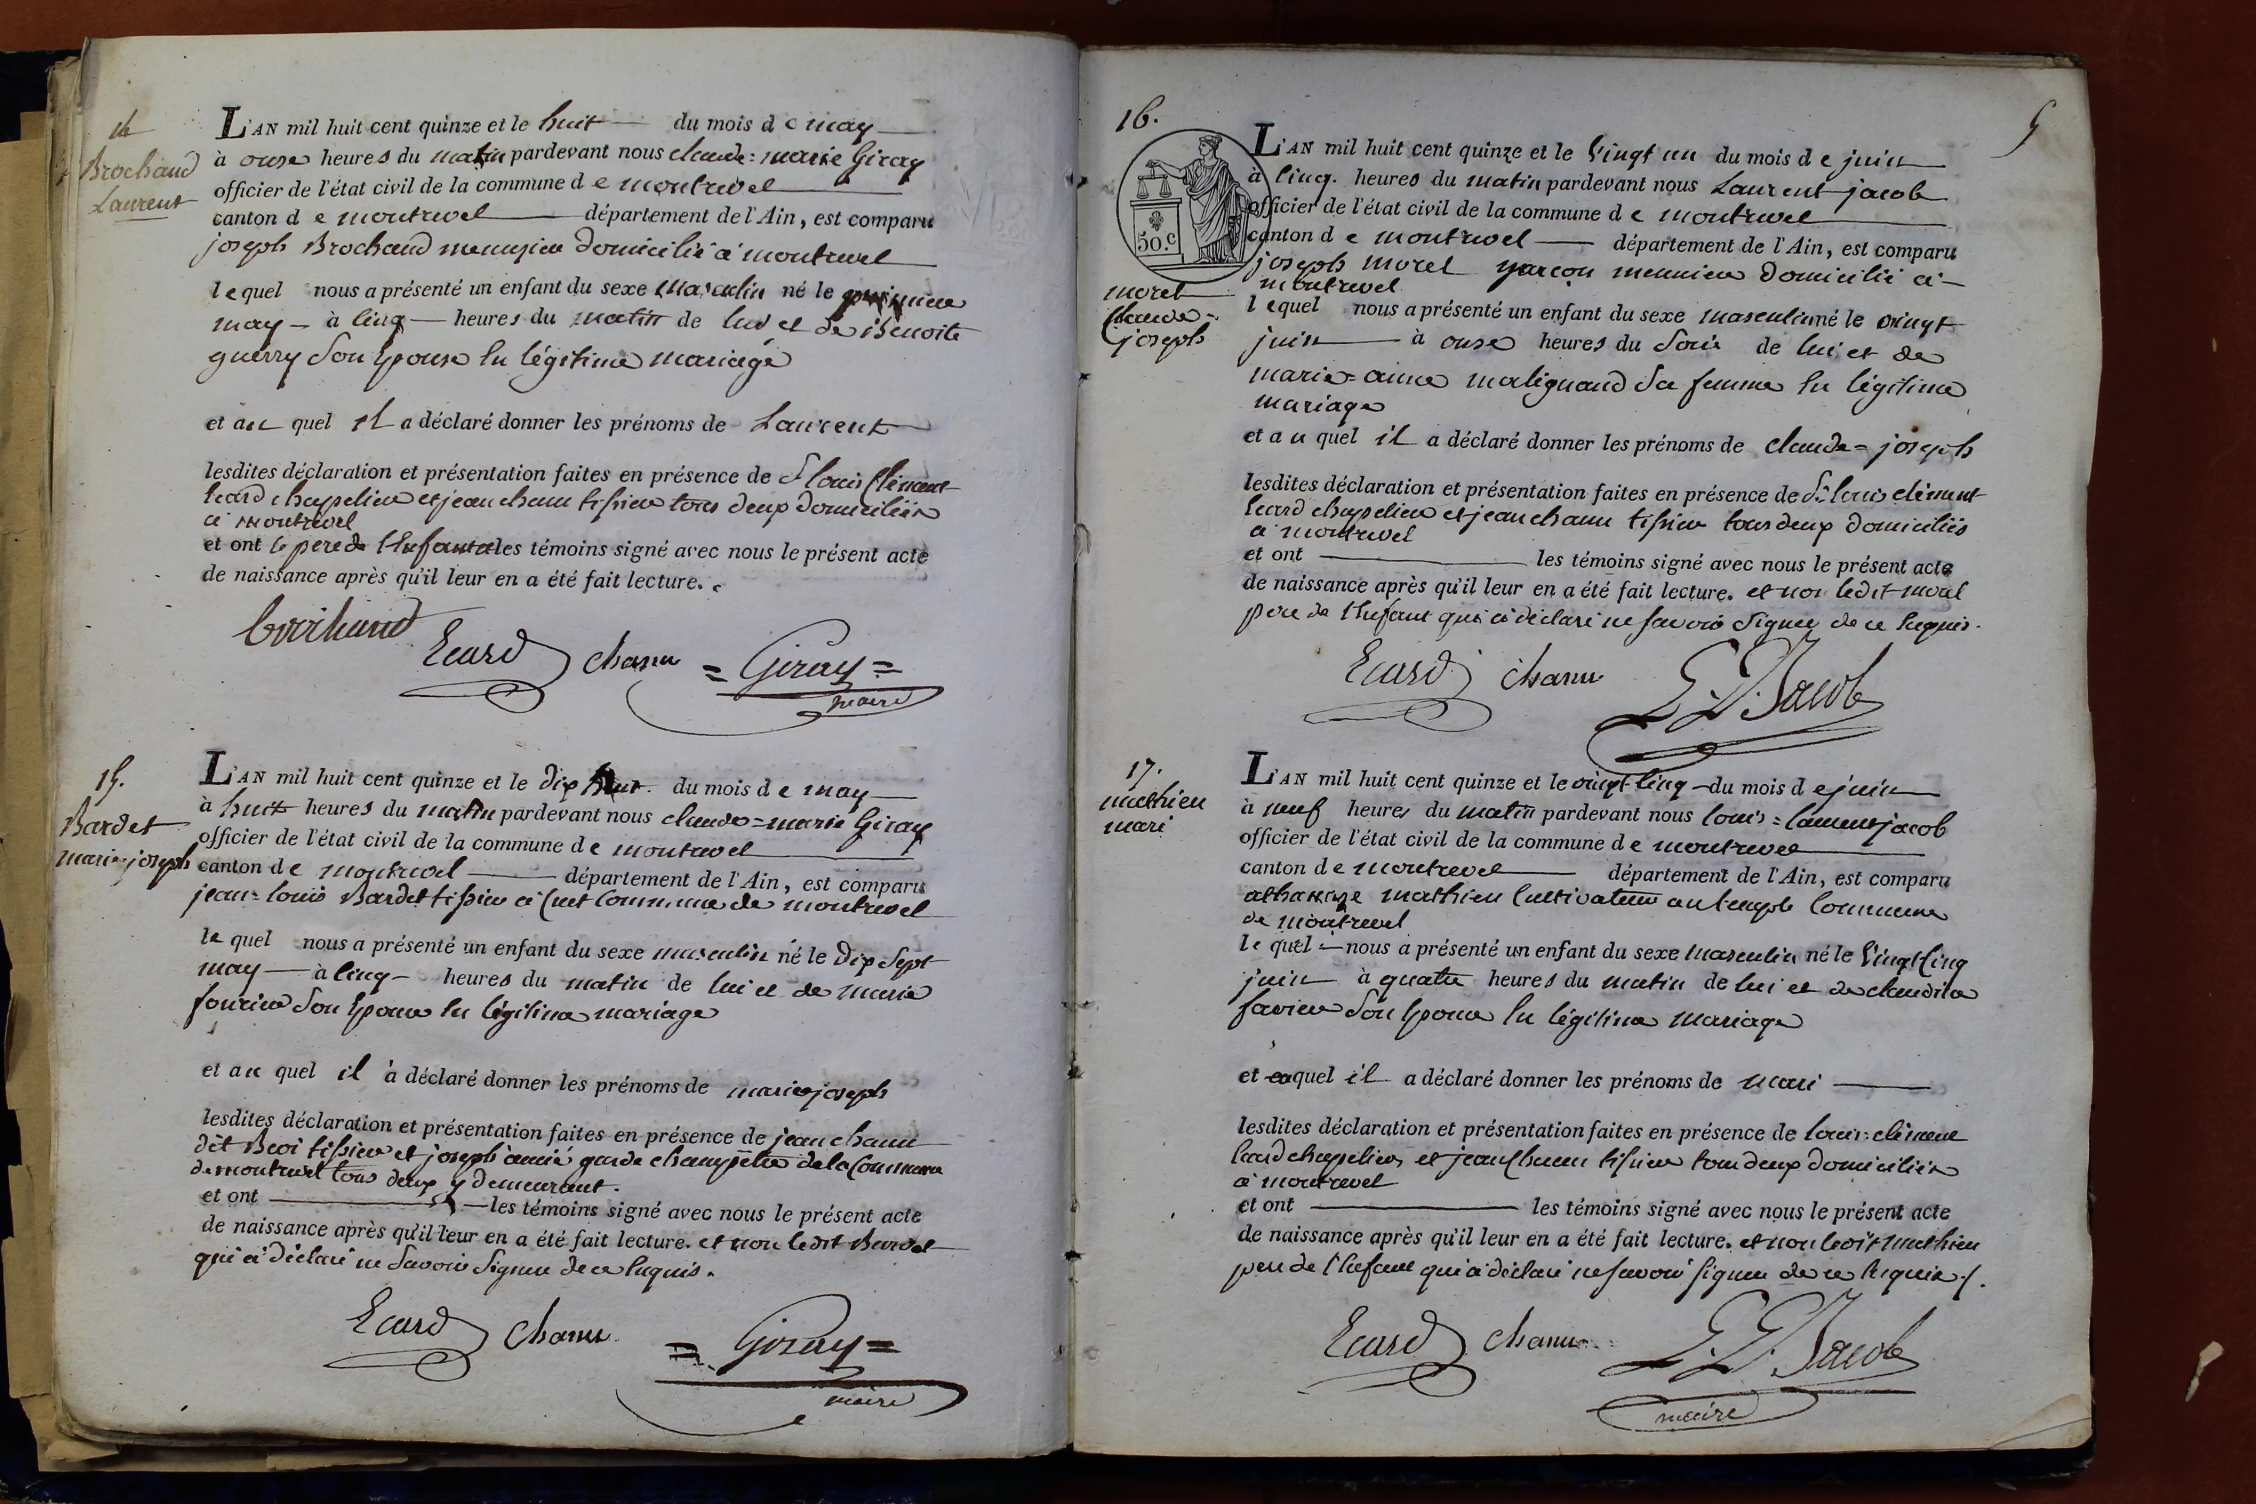 14
Brochaud
Laurent
L'AN mil huit cent quinze et le huit du mois de may
à onze heures du matin pardevant nous claude=marie Giray
officier de l'état civil de la commune de montrevel
canton de montrevel département de l'Ain, est comparu
joseph Brochaud menuzier domicilié à montrevel
lequel nous a présenté un enfant du sexe masculin né le premier
may à cinq heures du matin de lui et de Benoite
guerry son Epouse En légitime mariage
et au quel il a déclaré donner les prénoms de Laurent
lesdites déclaration et présentation faites en présence de Sr louis Clément
Ecard chapelier et jean chanu tissier tous deux domiciliés
à montrevel
et ont le pere de l'Enfant et les témoins signé avec nous le présent acte
de naissance après qu'il leur en a été fait lecture.
brochand
Ecard chanu = Giray =
maire
15.
Bardet
marie-joseph
L'AN mil huit cent quinze et le dix huit du mois de may
à huit heures du matin pardevant nous claude=marie Giray
officier de l'état civil de la commune de montrevel
canton de montrevel département de l'Ain, est comparu
jean=louis Bardet tissier à Cuet Commune de montrevel
le quel nous a présenté un enfant du sexe masculin né le dix Sept
may à cinq heures du matin de lui et de marie
fourier son Epouse En légitime mariage
et au quel il à déclaré donner les prénoms de marie joseph
lesdites déclaration et présentation faites en présence de jean chanu
dit Broi tissier et joseph amié garde champêtre de la Commune
de montrevel tous deux y demeurant.
et ont les témoins signé avec nous le présent acte
de naissance après qu'il leur en a été fait lecture. et non ledit Bardet
qui à déclaré ne Savoir Signer de ce Enquis.
Ecard chanu = Giray =
maire
5
16.
50.c
moret
Claude=
joseph
L'AN mil huit cent quinze et le vingt un du mois de juin
à cinq heures du matin pardevant nous Laurent jacob
officier de l'état civil de la commune de montrevel
canton de montrevel département de l'Ain, est comparu
joseph moret garçon meunier domicilié à
montrevel
lequel nous a présenté un enfant du sexe masculin né le vingt
juin à onze heures du Soir de lui et de
marie=anne malignand Sa femme En légitime
mariage
et au quel il a déclaré donner les prénoms de claude=joseph
lesdites déclaration et présentation faites en présence de Sr louis clément
Ecard chapelier et jean chanu tissier tous deux domiciliés
à montrevel
et ont les témoins signé avec nous le présent acte
de naissance après qu'il leur en a été fait lecture. et non ledit moret
pere de l'Enfant qui à déclaré ne savoir Signer de ce Enquis.
Ecard chanu L. L. Jacob
17.
mathieu
mari
L'AN mil huit cent quinze et le vingt cinq du mois de juin
à neuf heures du matin pardevant nous louis=laurent jacob
officier de l'état civil de la commune de montrevel
canton de montrevel département de l'Ain, est comparu
athanaze mathieu Cultivateur au temple Commune
de montrevel
le quel nous a présenté un enfant du sexe masculin né le Vingt Cinq
juin à quatre heures du matin de lui et de claudine
favier Son Epouse En légitime mariage
et auquel il a déclaré donner les prénoms de mari
lesdites déclaration et présentation faites en présence de louis=clément
Ecard chapelier et jean Chanu tissier tous deux domiciliés
à montrevel
et ont les témoins signé avec nous le présent acte
de naissance après qu'il leur en a été fait lecture. et non ledit mathieu
pere de l'Enfant qui à déclaré ne savoir signer de ce Enquis.
Ecard chanu L. L. Jacob
maire